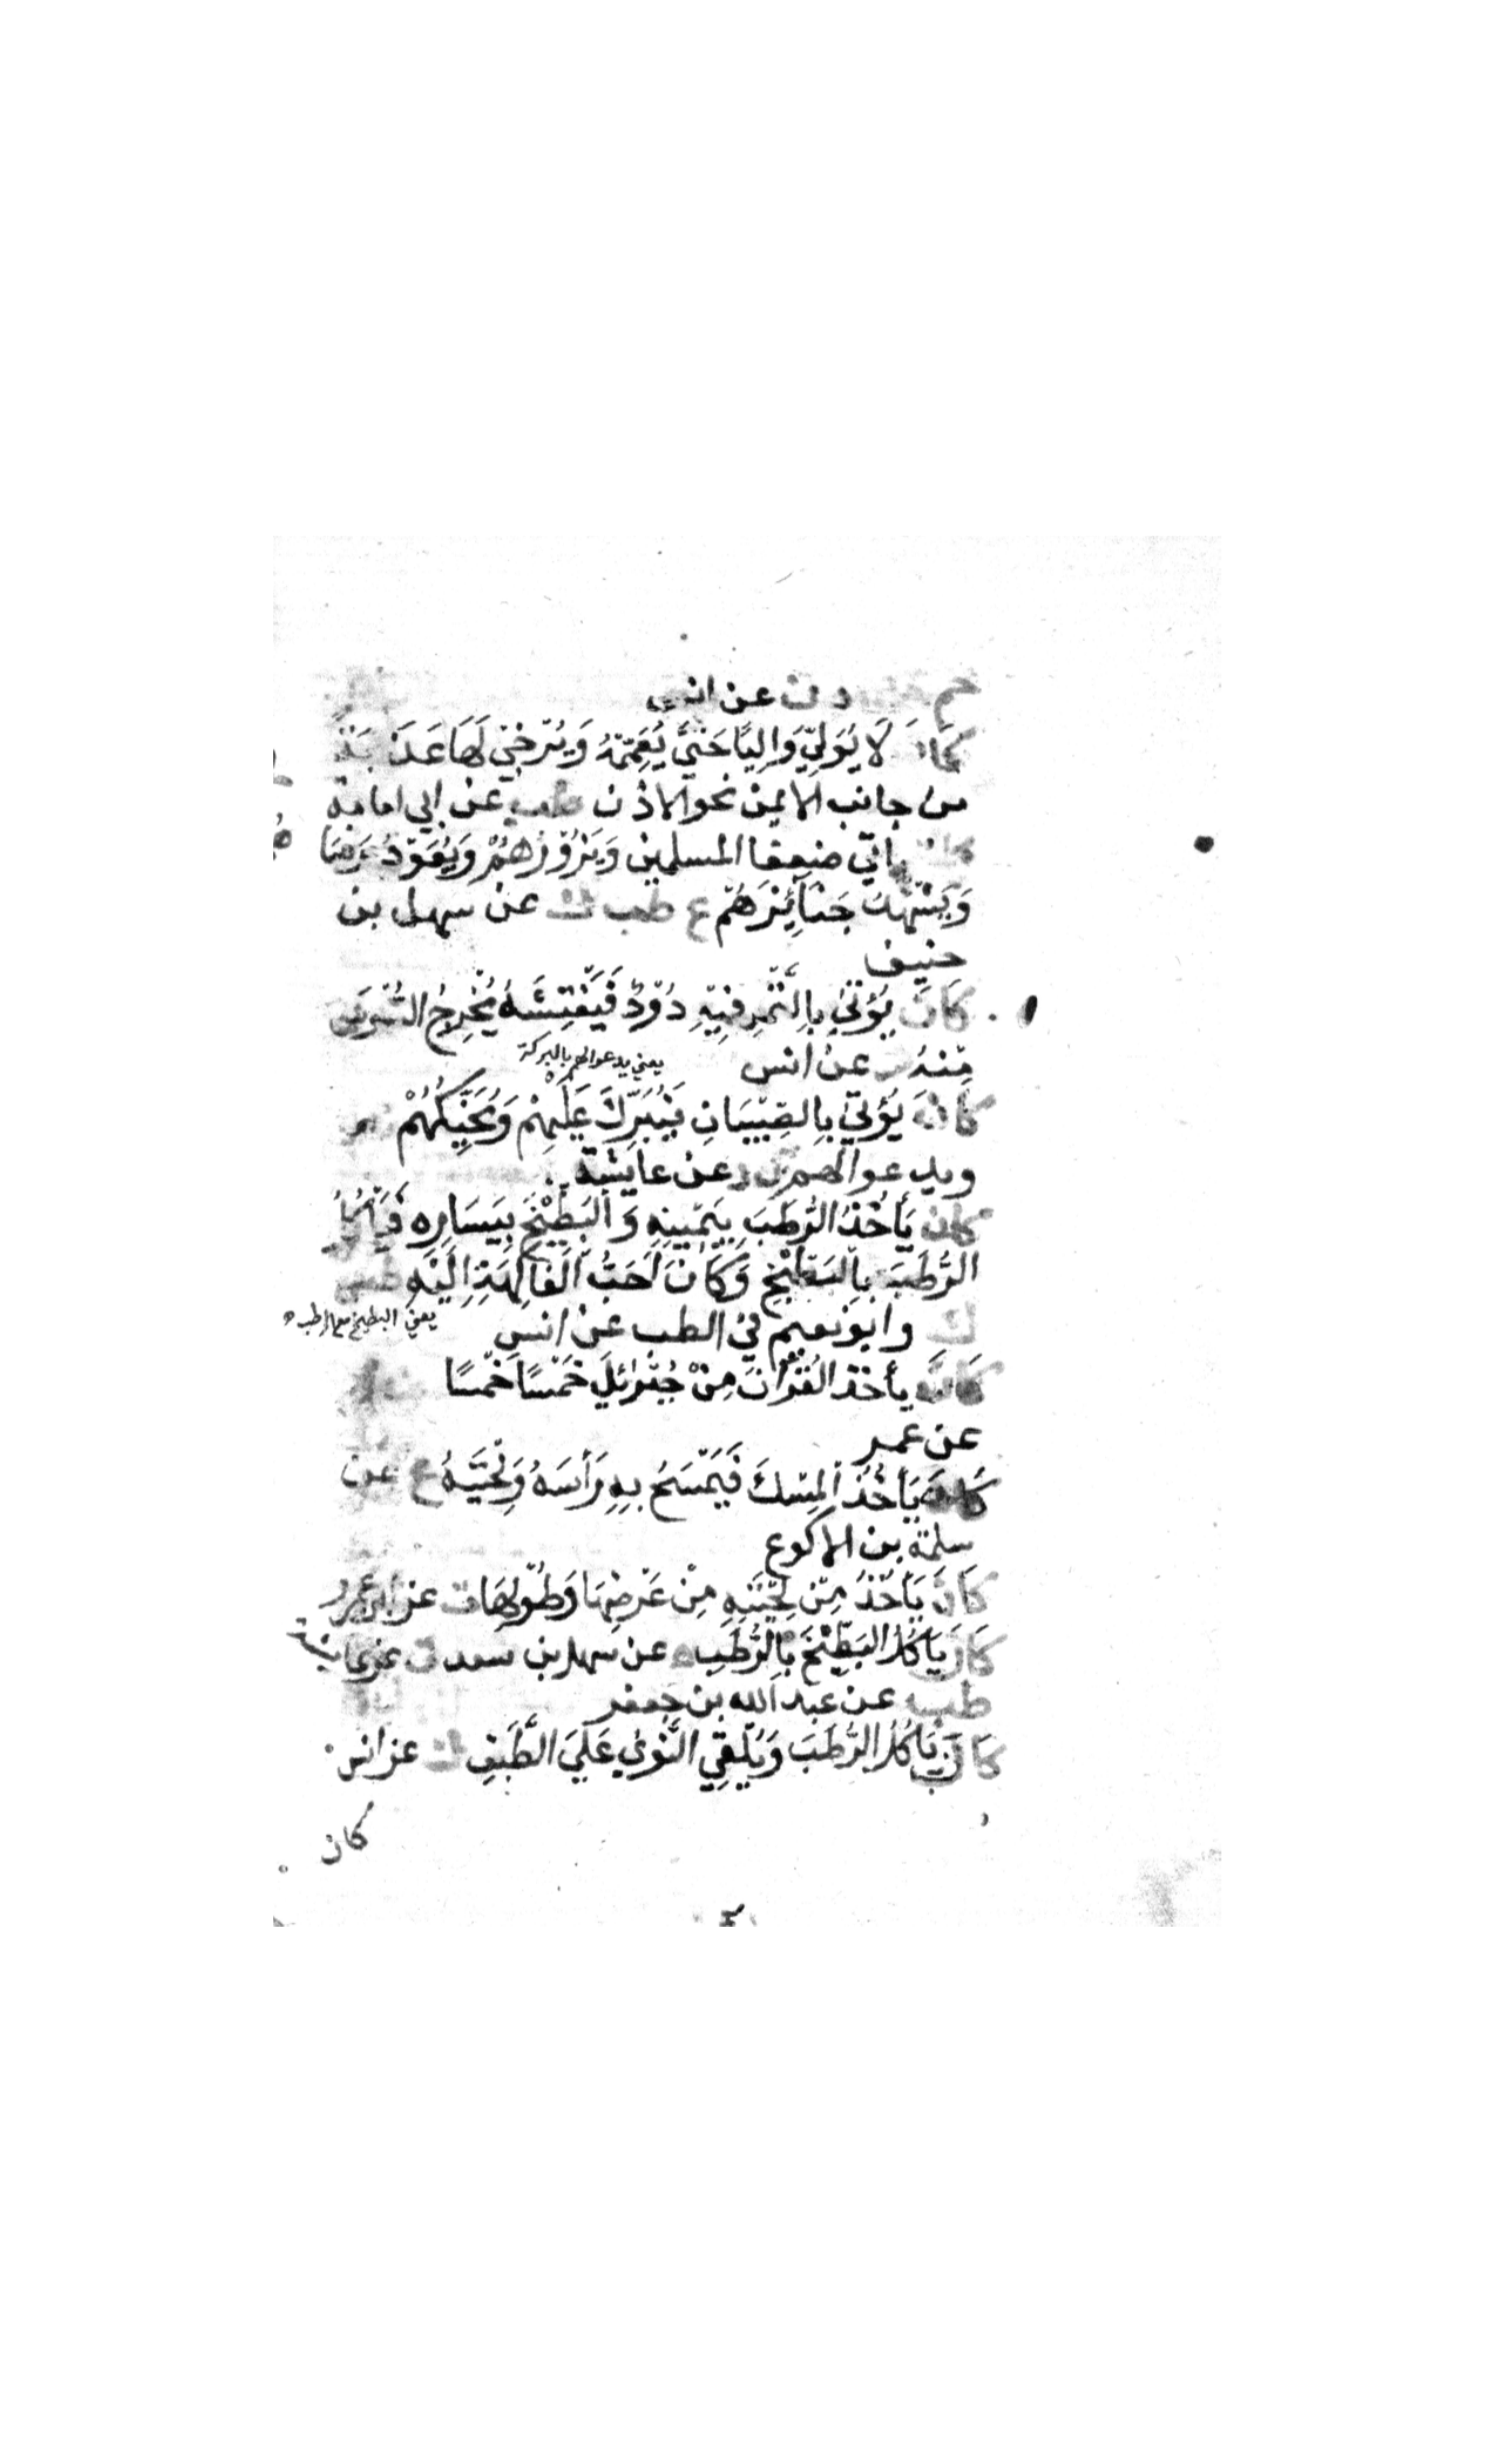 حم د ن عن انس
كان لَا يُوَلِّي وَالِيًا حَتَّى يُعَمِّمَهُ وَيُرْخِيَ لَهَا عَذَبَةً
من جانب الايمن نحو الاذن طب عن ابي امامة
كان ياتي ضعفا المسلمين وَيَزُوْرُهُمْ وَيَعُوْدُ مَرْضَا
وَيَشْهَدُ جَنَائِزَهُمْ ع طب ك عن سهل بن
حنيف
كَانَ يُؤْتَى بِالتَّمْرِ فِيْهِ دُوْدٌ فَيُفَتِّشُهُ يُخْرِجُ السُّوْسَ
مِنْهُ د عن انس
يعني يدعوا لهم بالبركة
كَانَ يُؤْتَى بِالصِّبْيَانِ فَيُبَرِّكُ عَلَيْهِمْ وَيُحَنِّكُهُمْ
ويدعوا لهم ق د عن عايشة
كان يَأْخُذُ الرُّطَبَ بِيَمِيْنِهِ وَالْبَطِّيْخَ بِيَسَارِهِ فَيَأْكُلُ
الرُّطَبَ بِالبَطِّيْخِ وَكَانَ أَحَبُّ الْفَاكِهَةِ اِلَيْهِ طس
ك وابو نعيم في الطب عن انس
يعني البطيخ مع الرطب
كَانَ يأخذ القُرْآنَ مِنْ جِبْرَائِلَ خَمْسًا خَمْسًا
عن عمر
كَانَ يَأْخُذُ الْمِسْكَ فَيَمْسَحُ بِهِ رَأْسَهُ وَلِحْيَتَهُ ع عن
سلمة بن الاكوع
كَانَ يَأْخُذُ مِنْ لِحْيَتِهِ مِنْ عَرْضِهَا وَطُوْلِهَا ت عن ابن عمرو
كَانَ يَأْكُلُ البَطِّيْخَ بِالرُّطَبِ ه عن سهل بن سعد ت عن عايشة
طب عن عبد الله بن جعفر
كَانَ يَأْكُلُ الرُّطَبَ وَيُلْقِي النَّوَى عَلَى الطَّبَقِ ك عن انس
كان